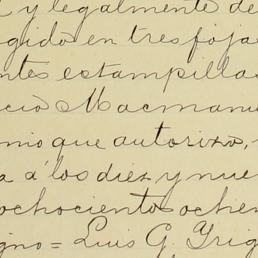 y legalmente de
gido en tres foja
ntes estampillas
cio Macmanu
nio que autorizo,
a á los diez y nue
ochocientos ochen
gno = Luis G. Yrig